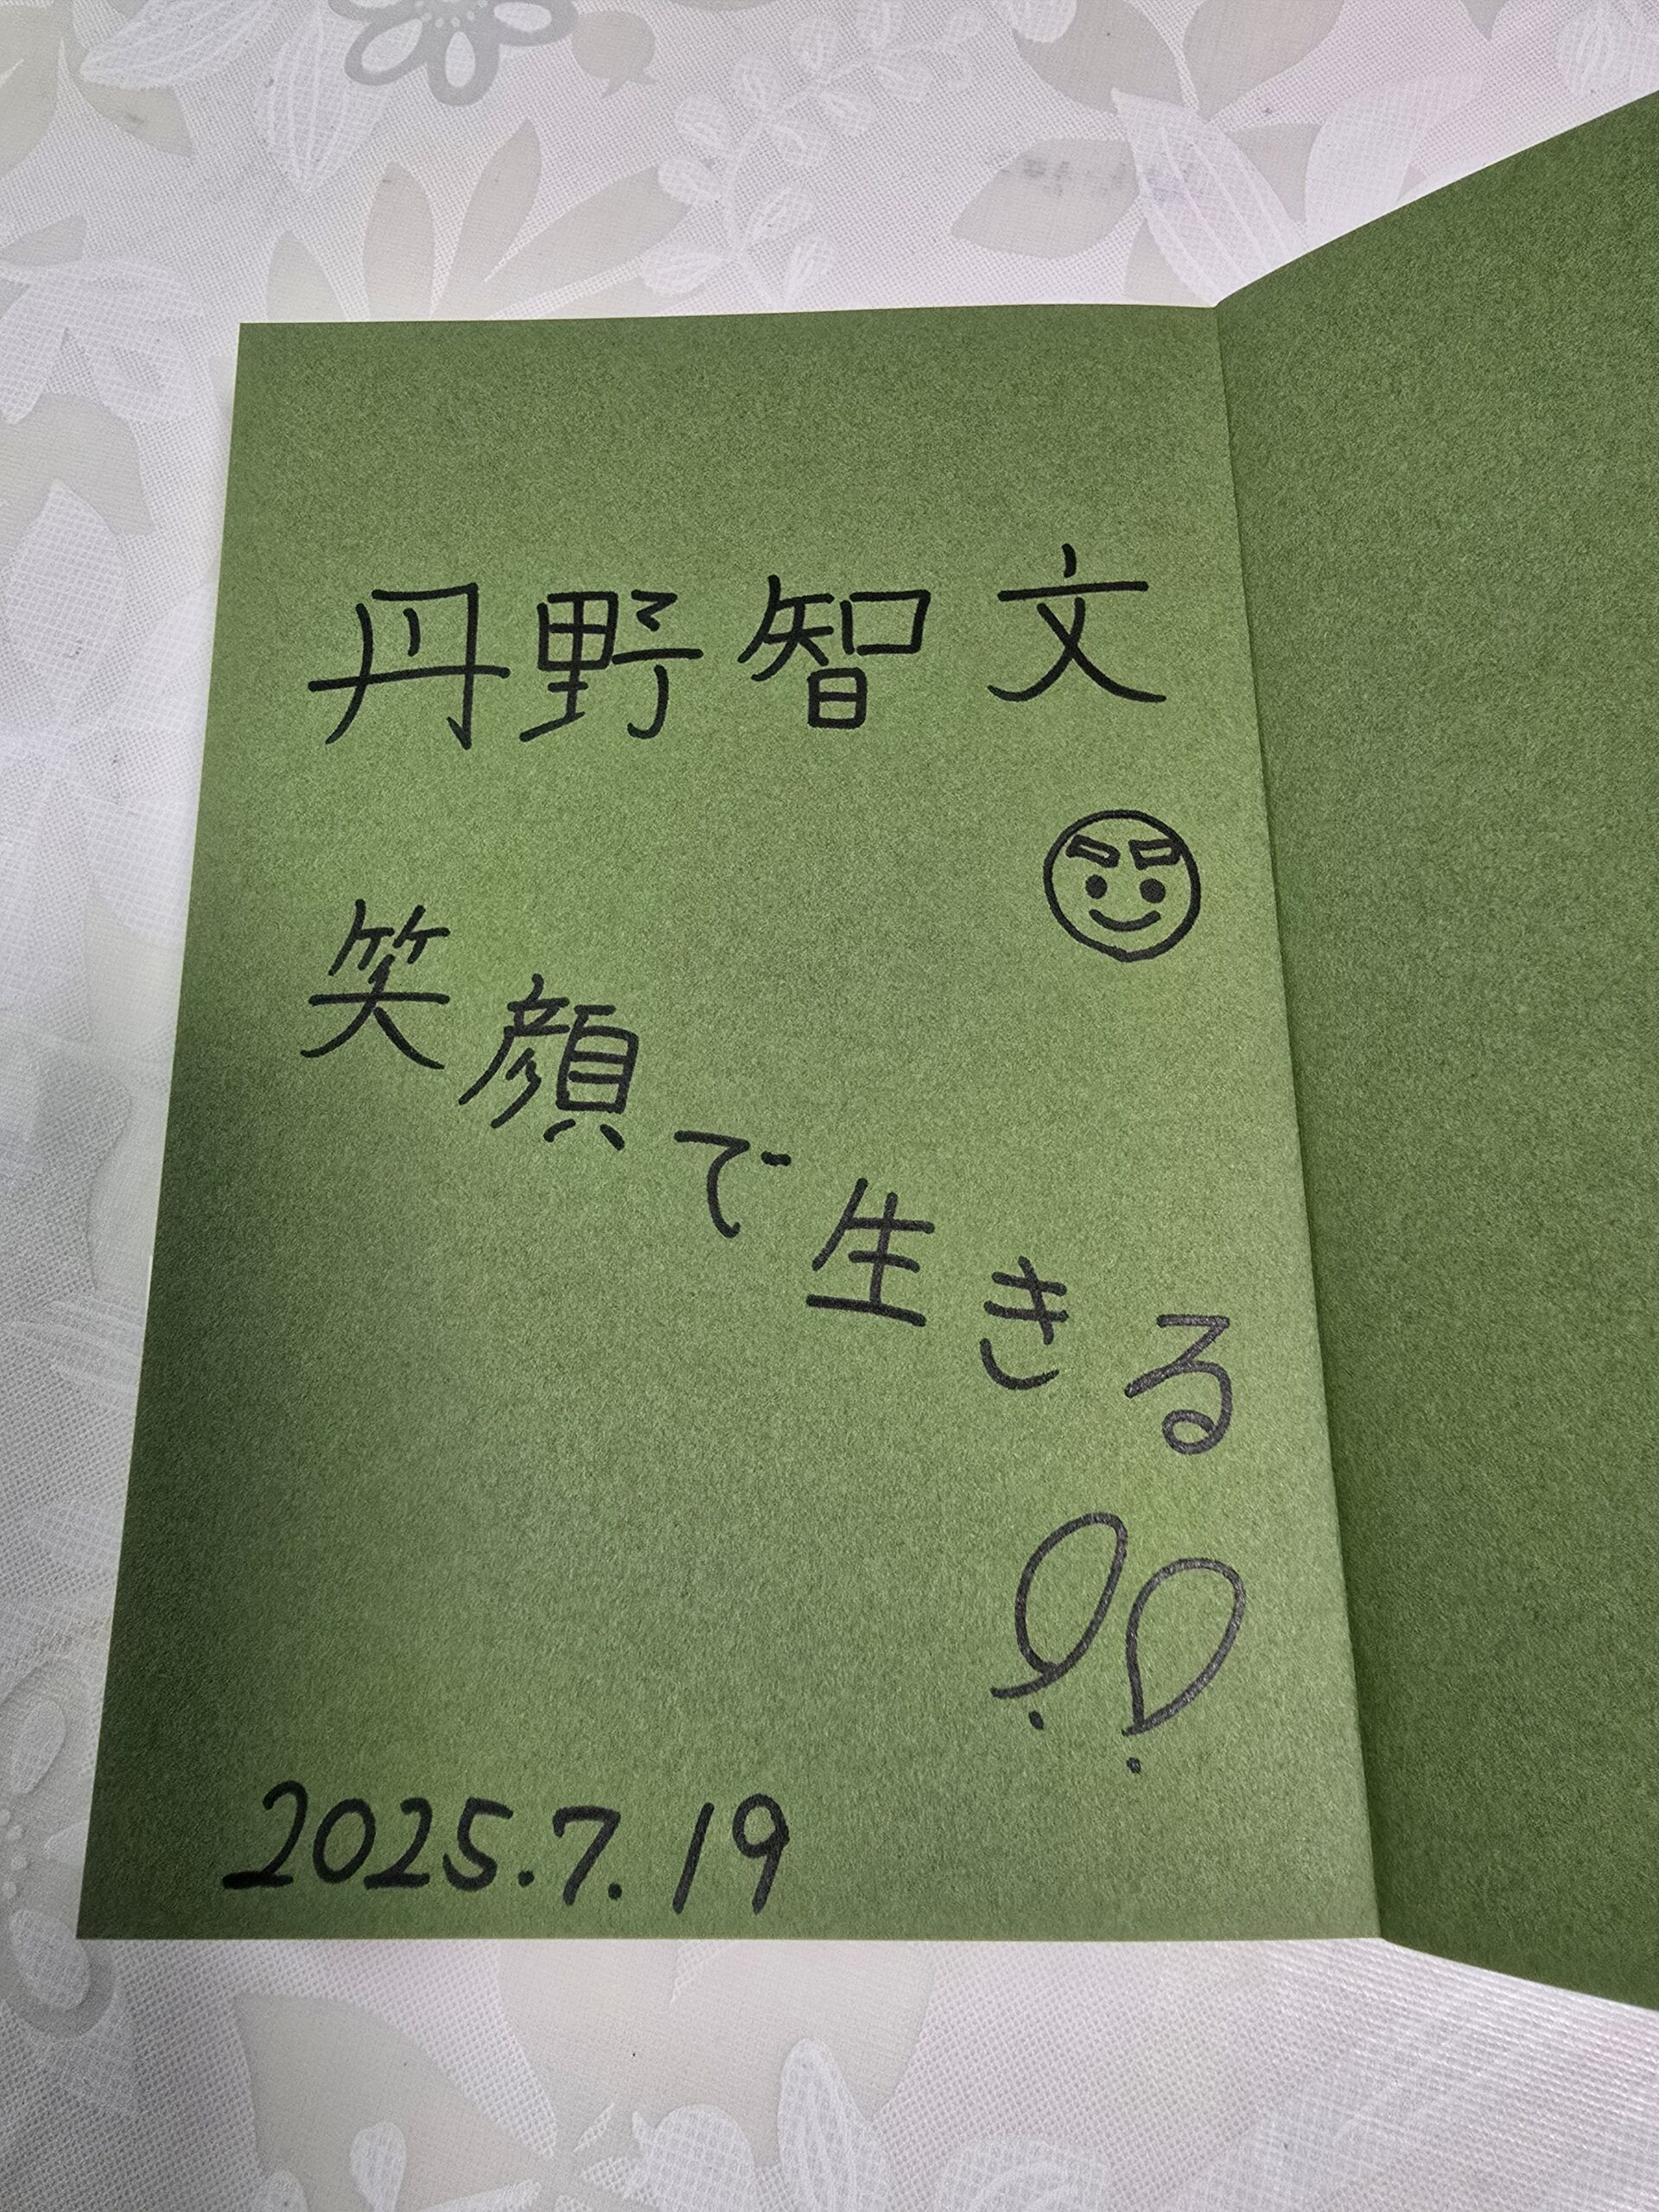 丹野智文
笑顔で生きる
!!
2025.7.19